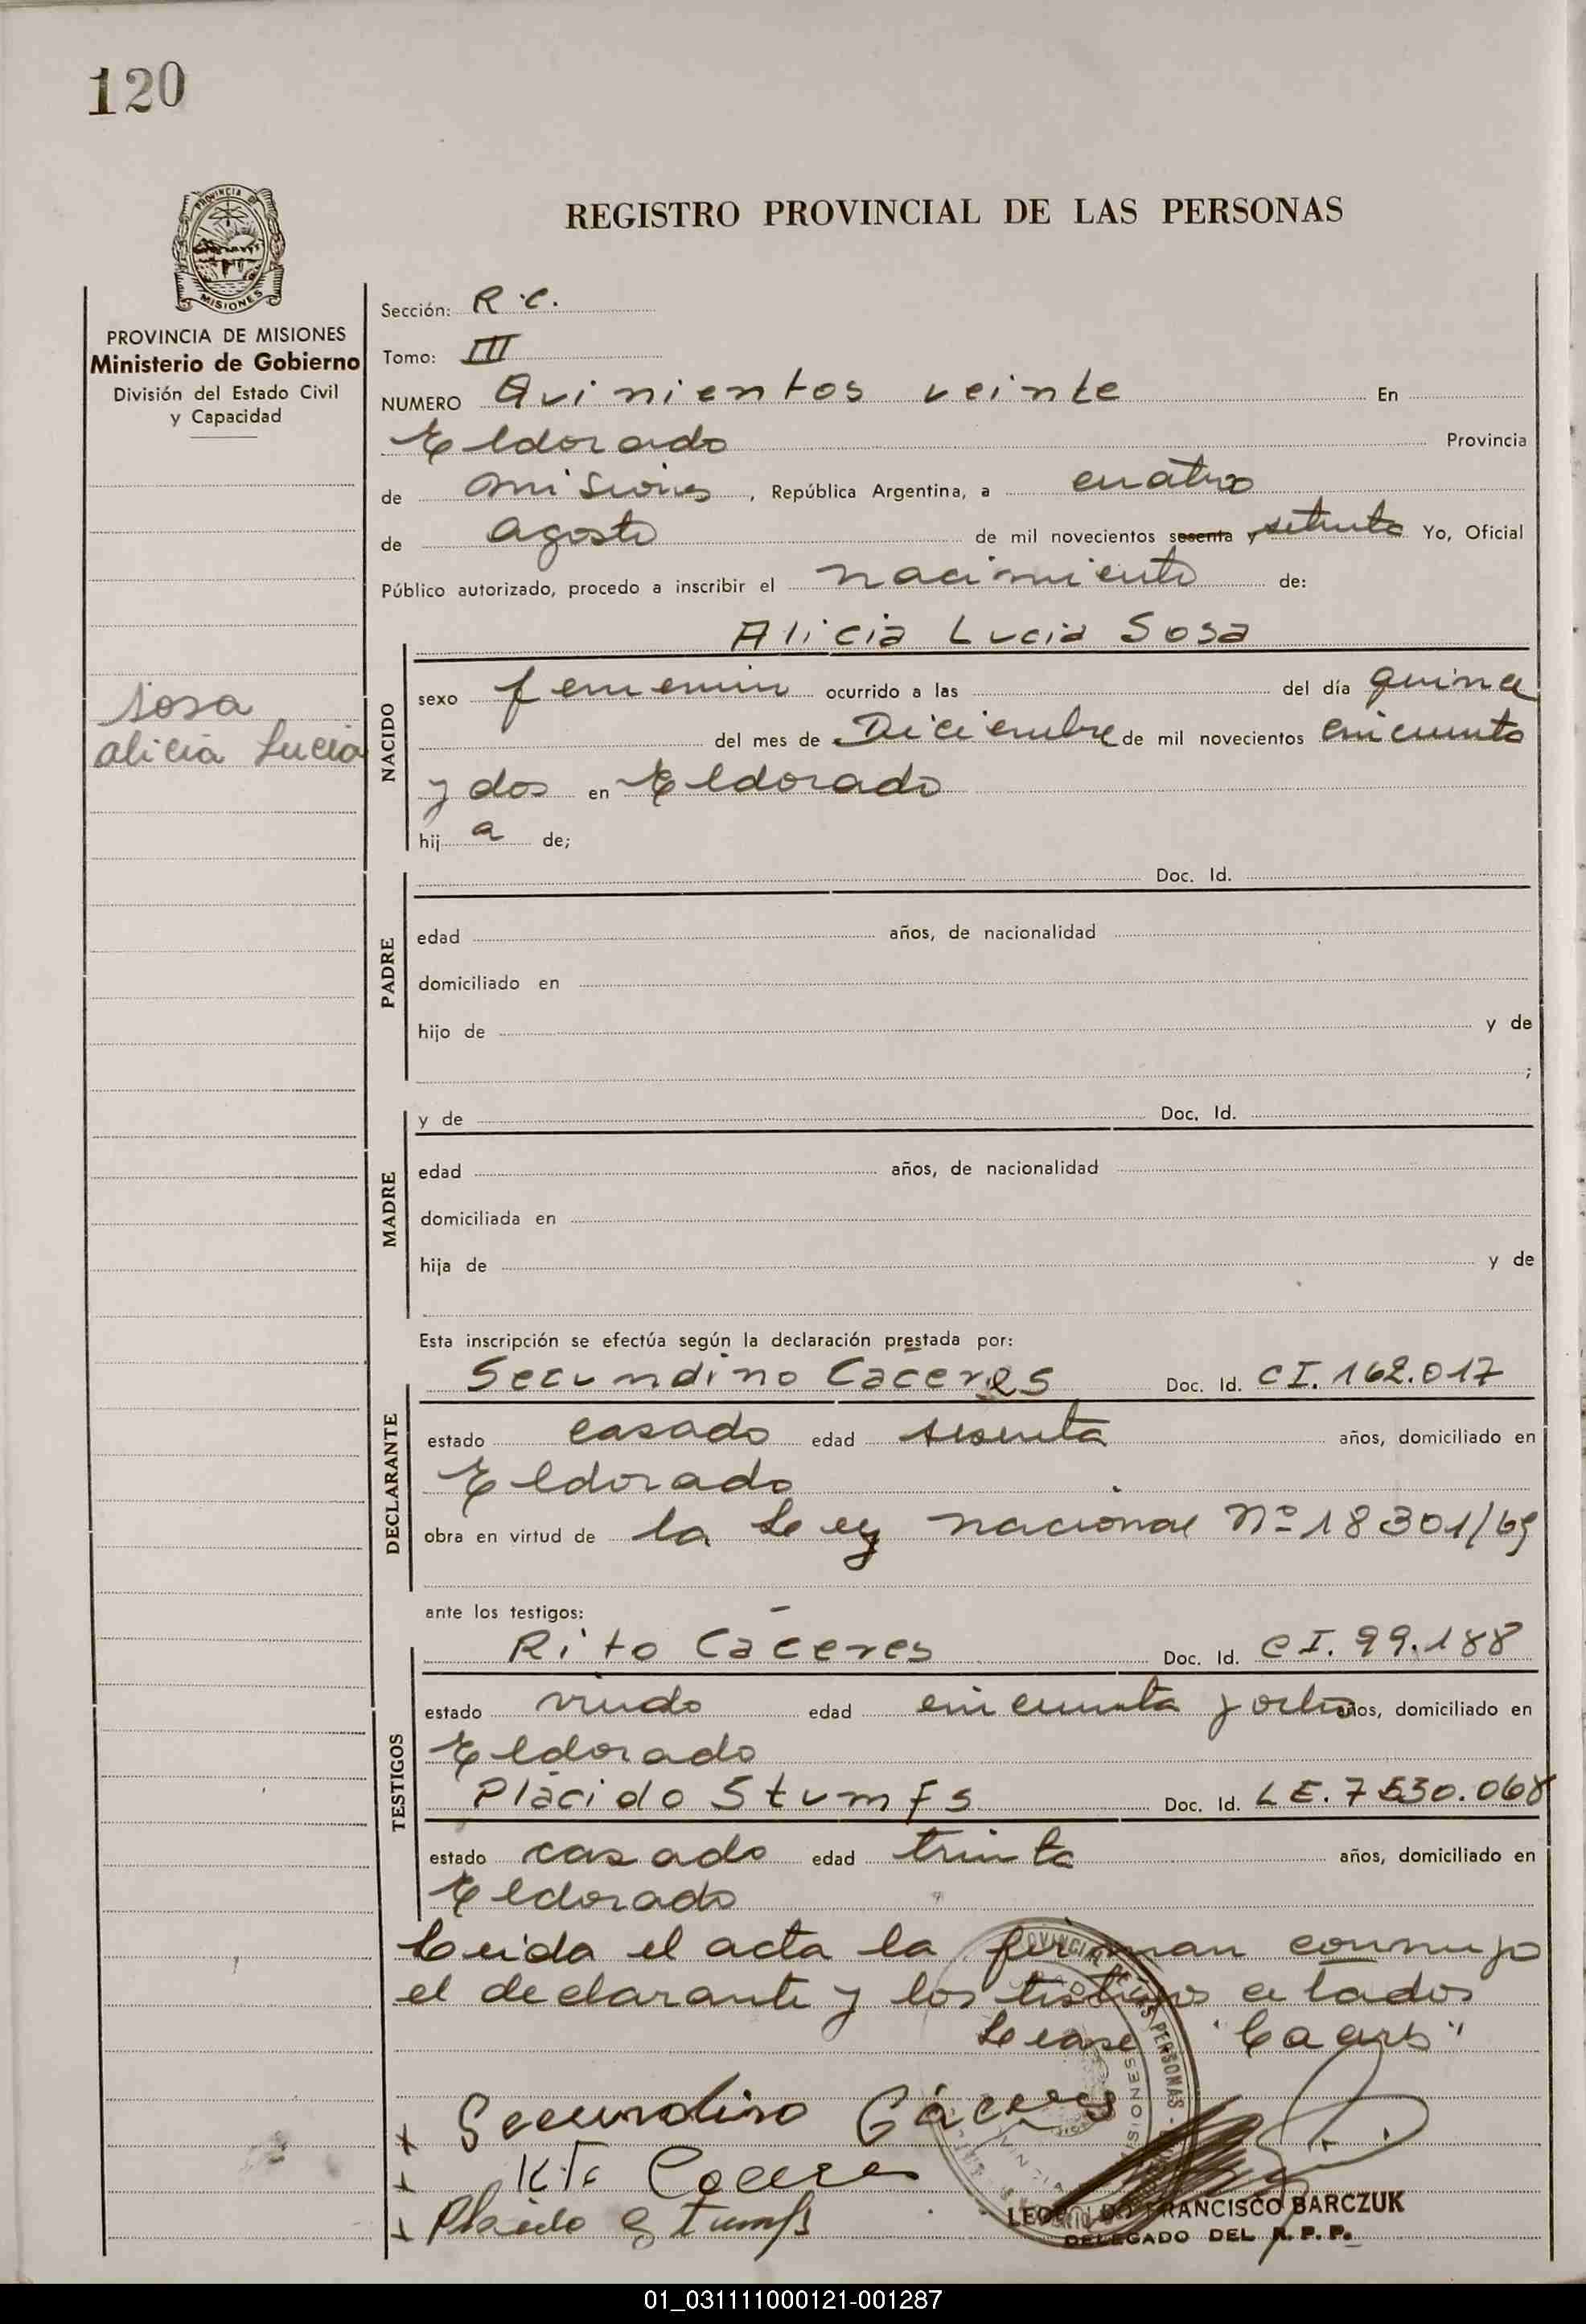 120
PROVINCIA
MISIONES
REGISTRO PROVINCIAL DE LAS PERSONAS
PROVINCIA DE MISIONES
Ministerio de Gobierno
División del Estado Civil
y Capacidad
Sosa
Alicia Lucia
Sección: R.C.
Tomo: III
NUMERO Quinientos veinte En
Eldorado Provincia
de Misiones, República Argentina, a cuatro
de agosto de mil novecientos sesenta y setenta Yo, Oficial
Público autorizado, procedo a inscribir el nacimiento de:
Alicia Lucia Sosa
NACIDO
sexo femenin ocurrido a las del día quince
del mes de Diciembre de mil novecientos cincuenta
y dos en Eldorado
hij a de;
PADRE
Doc. Id.
edad años, de nacionalidad
domiciliado en
hijo de y de
;
MADRE
y de Doc. Id.
edad años, de nacionalidad
domiciliada en
hija de y de
Esta inscripción se efectúa según la declaración prestada por:
DECLARANTE
Secundino Cáceres Doc. Id. CI. 162.017
estado casado edad sesenta años, domiciliado en
Eldorado
obra en virtud de la Ley nacional Nº 18301/69
ante los testigos:
TESTIGOS
Rito Cáceres Doc. Id. CI. 99.188
estado viudo edad cincuenta y ocho años, domiciliado en
Eldorado
Plácido Stumfs Doc. Id. LE. 7530.068
estado casado edad treinta años, domiciliado en
Eldorado
Leida el acta la firman conmigo
el declarante y los testigos citados
Lease "Caceres"
x Secundino Cáceres
x Rito Caceres
x Placido Stumfs
LEOPOLDO FRANCISCO BARCZUK
DELEGADO DEL R. P. P.
01_031111000121-001287